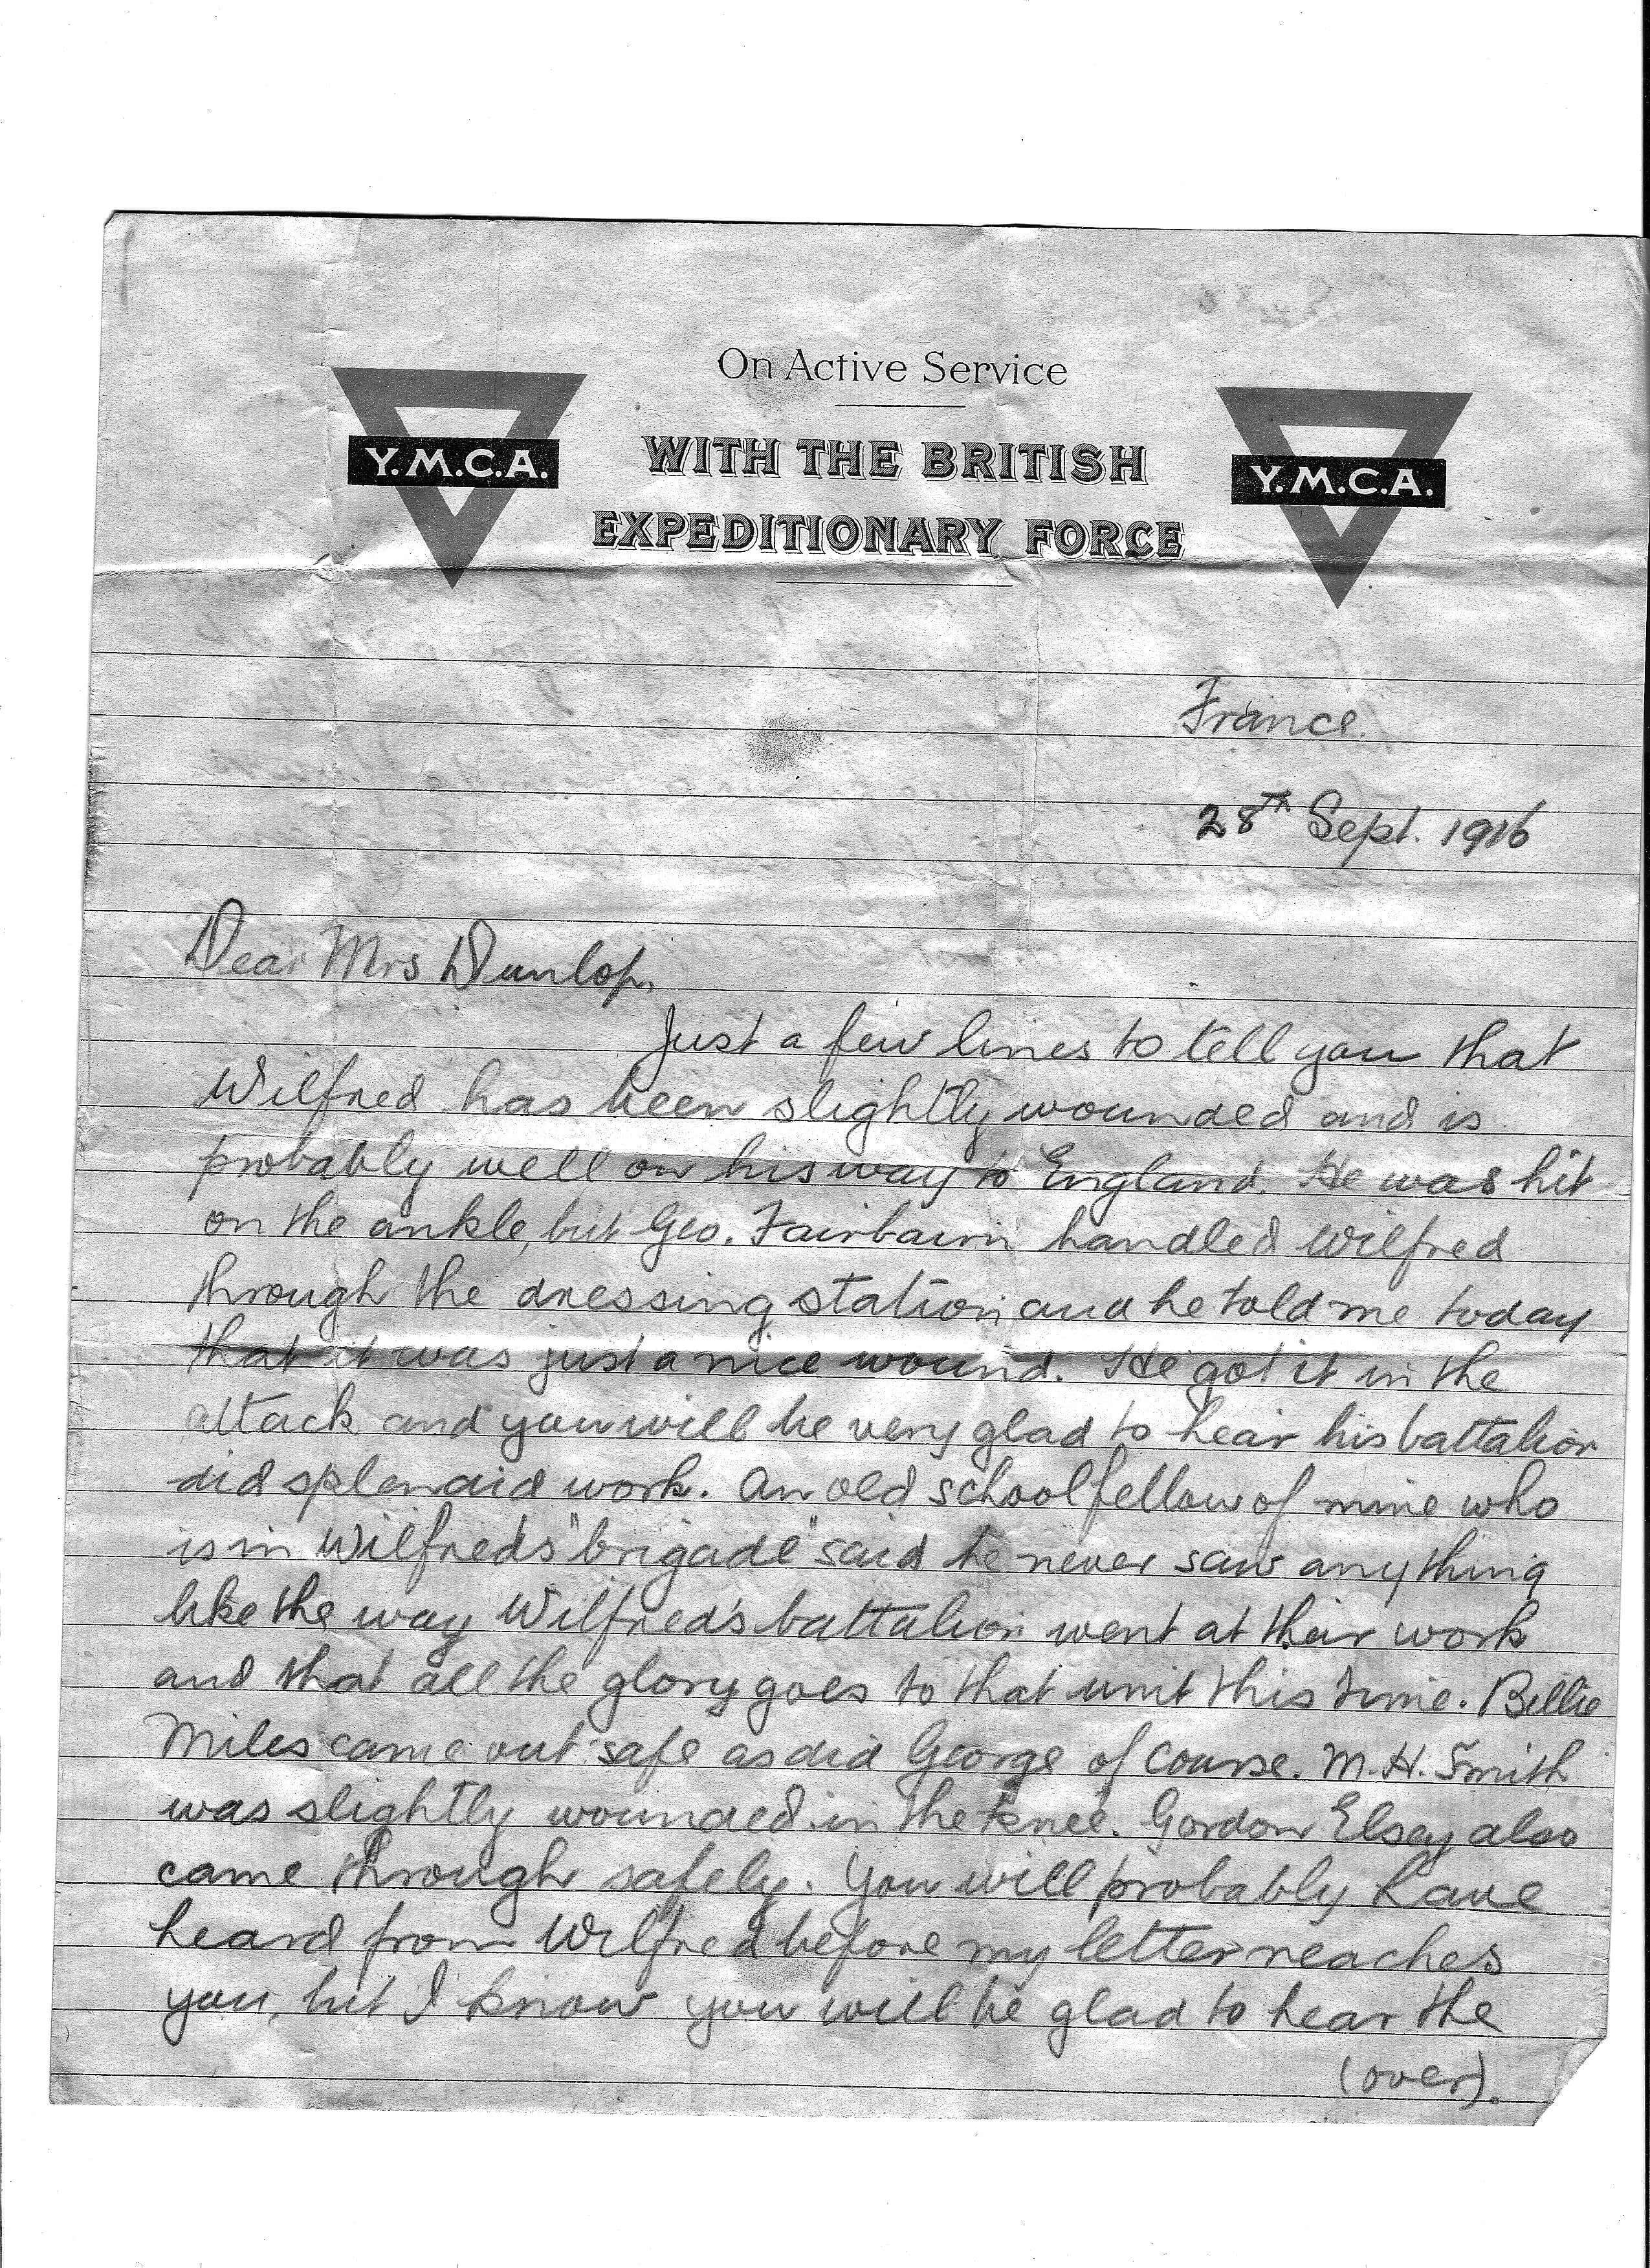 On Active Service
Y.M.C.A.
WITH THE BRITISH
EXPEDITIONARY FORCE
Y.M.C.A.
France.
28th Sept. 1916
Dear Mrs Dunlop,
Just a few lines to tell you that
Wilfred has been slightly wounded and is
probably well on his way to England. He was hit
on the ankle, but Geo. Fairbairn handled Wilfred
through the dressing station and he told me today
that it was just a nice wound. He got it in the
attack and you will be very glad to hear his battalion
did splendid work. An old schoolfellow of mine who
is in Wilfreds "brigade" said he never saw anything
like the way Wilfred's battalion went at their work
and that all the glory goes to that unit this time. Billie
Miles came out safe as did George of course. M.H. Smith
was slightly wounded in the knee. Gordon Elsey also
came through safely. You will probably have
heard from Wilfred before my letter reaches
you, but I know you will be glad to hear the
(over).